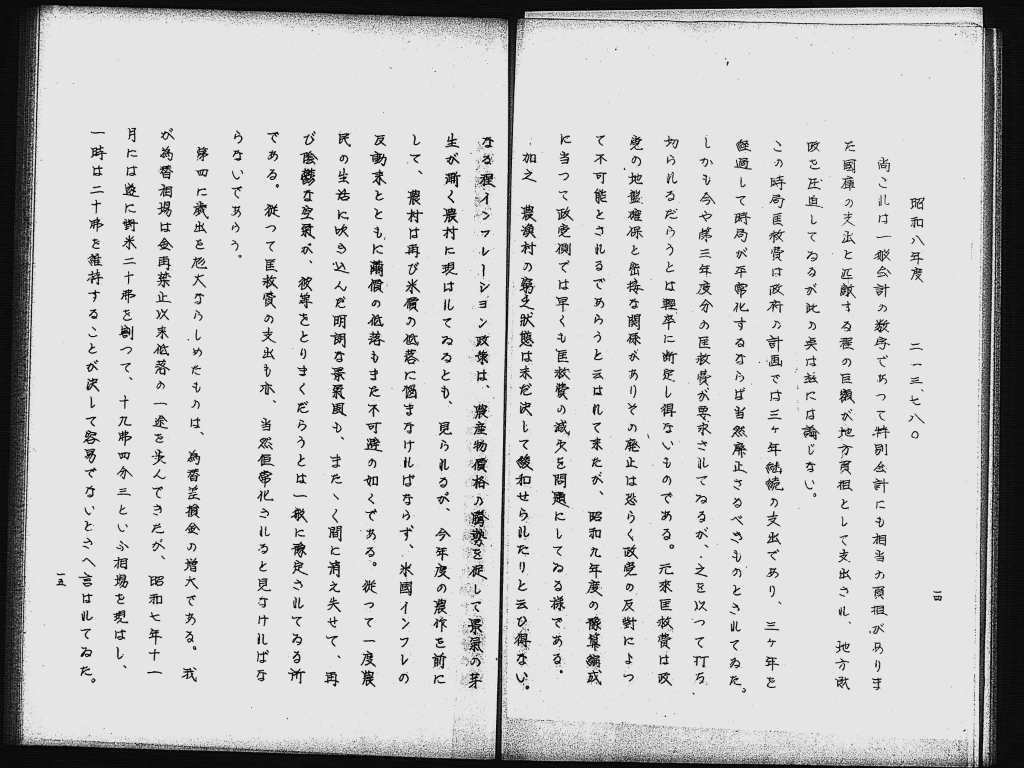 一四
昭和八年度　二一三、七八〇
尚これは一般会計の数字であつて特別会計にも相当の負担がありま
た國庫の支出と匹敵する程の巨額が地方負担として支出され、地方財
政を圧迫してゐるが此の点は茲には論じない。
この時局匡救費は政府の計画では三ヶ年継続の支出であり、三ヶ年を
経過して時局が平常化するならば当然廃止さるべきものとされてゐた。
しかも今や第三年度分の匡救費が要求されてゐるが、之を以つて打ち
切られるだらうとは輕卒に断定し得ないものである。元來匡救費は政
党の地盤確保と密接な関係がありその廃止は恐らく政党の反対によつ
て不可能とされるであらうと云はれて来たが、昭和九年度の豫算編成
に当つて政党側では早くも匡救費の減少を問題にしてゐる様である。
加之　農漁村の窮乏狀態は未だ決して緩和せられたりと云ひ得ない。
なる程インフレーション政策は、農産物價格の騰勢を促して景氣の芽
生が漸く農村に現はれてゐるとも、見られるが、今年度の農作を前に
して、農村は再び米價の低落に悩まなければならず、米國インフレの
反動来とともに繭價の低落もまた不可避の如くである。従つて一度農
民の生活に吹き込んだ明朗な景氣風も、またゝく間に消え失せて、再
び陰鬱な空氣が、彼等をとりまくだらうとは一般に豫定されてゐる所
である。従つて匡救費の支出も亦、当然恒常化されると見なければな
らないであらう。
第四に歳出を尨大ならしめたものは、為替差損金の増大である。我
が為替相場は金再禁止以来低落の一途を歩んできたが、昭和七年十一
月には遂に對米二十弗を割つて、十九弗四分三といふ相場を現はし、
一時は二十弗を維持することが決して容易でないとさへ言はれてゐた。
一五